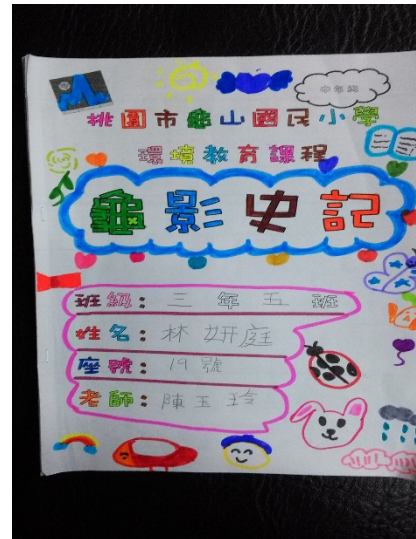 中年級
桃園市龜山國民小學
環境教育課程
龜影史記
班級：三年五班
姓名：林妍庭
座號：19號
老師：陳玉玲